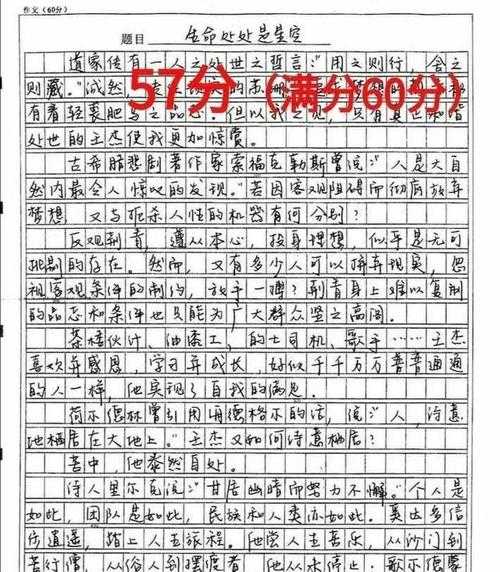 作文(60分)
题目 生命处处是星空
道家传有一人之处世之哲言："用之则行，舍之
则藏。"诚然，
57分（满分60分）
有着轻裘肥马之 但以我之见，只有真正和谐
处世的王杰使我更加惊赏。
古希腊悲剧著作家索福克勒斯曾说："人是大自
然内最令人惊叹的发现。"若因客观阻碍而彻底放弃
梦想，又与扼杀人性的机器有何分别？
反观荆青，遵从本心，投身理想，似乎是无可
挑剔的存在。然而，又有多少人可以摒弃现实，忽
视客观条件的制约，放手一搏？荆青身上难以复制
的品志和条件也只能为广大群众竖之高阁。
茶楼伙计、油漆工、的士司机、歌手……王杰
喜欢并感恩，学习并成长，好似千千万万普普通通
的人一样，他实现了自我的满足。
荷尔德林曾引用海德格尔的话，说："人，诗意
地栖居在大地上。"王杰又如何诗意栖居？
苦中，他泰然自处。
诗人里尔克说："甘居幽暗而努力不懈。"个人是
如此，团队是如此，民族和人类亦如此。奥达多信
仿逍遥，踏上人生旅程。他尝人生苦乐，从沙门到
苦行僧，从俗人到摆渡者，他从未停止。歌尔德蒙